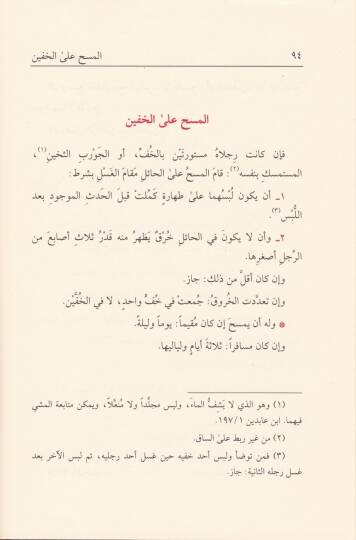 ٩٤ المسح على الخفين
المسح على الخفين
فإن كانت رِجلاهُ مستورتَيْن بالخُفِّ، أو الجَوْربِ الثخينِ(١)،
المستمسك بنفسه(٢): قامَ المسحُ على الحائلِ مَقامَ الغَسْلِ بشرط:
١ـ أن يكون لُبْسُهما على طهارةٍ كَمُلتْ قبلَ الحَدثِ الموجودِ بعد
اللُّبْس(٣).
٢ـ وأن لا يكونَ في الحائلِ خَرْقٌ يَظهرُ منه قَدْرُ ثلاثِ أصابعَ من
الرِّجلِ أصغرِها.
وإن كان أقلَّ من ذلك: جاز.
وإن تعدَّدت الخُروقُ: جُمعتْ في خُفٍّ واحدٍ، لا في الخُفَّيْن.
* وله أن يمسحَ إن كان مُقيماً: يوماً وليلةً.
وإن كان مسافراً: ثلاثةَ أيامٍ ولياليها.
(١) وهو الذي لا يَشِفُّ الماءَ، وليس مجلَّداً ولا مُنعَّلاً، ويمكن متابعة المشي
فيهما. ابن عابدين ١٩٧/١.
(٢) من غير ربط على الساق.
(٣) فمن توضأ ولبس أحد خفيه حين غسل أحد رجليه، ثم لبس الآخر بعد
غسل رجله الثانية: جاز.